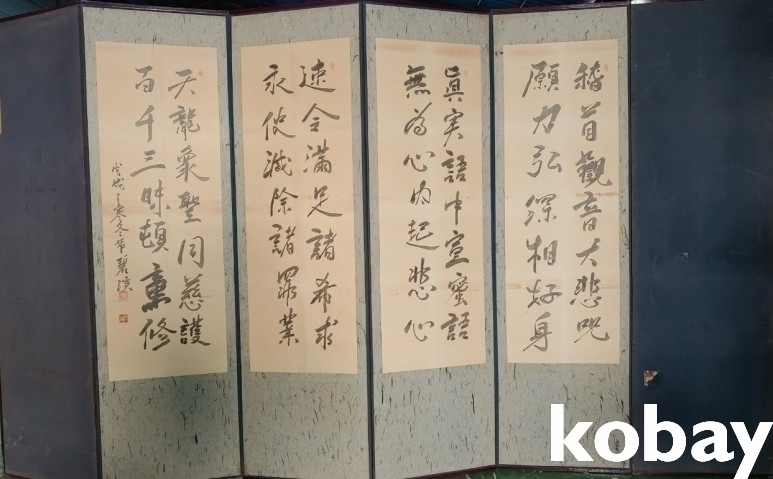 稽首觀音大悲呪
願力弘深相好身
眞実語中宣蜜語
無為心內起悲心
速令滿足諸希求
永使滅除諸罪業
天龍衆聖同慈護
百千三昧頓熏修
之寒冬節碧
kobay